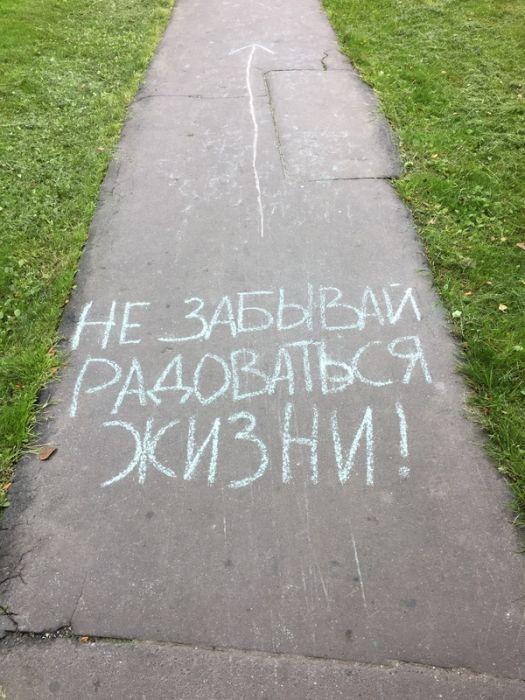 НЕ ЗАБЫВАЙ
РАДОВАТЬСЯ
ЖИЗНИ!